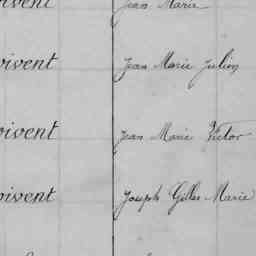 vivent Jean Marie
vivent Jean Marie Julien
vivent Jean Marie Victor
vivent Joseph Gilles Marie